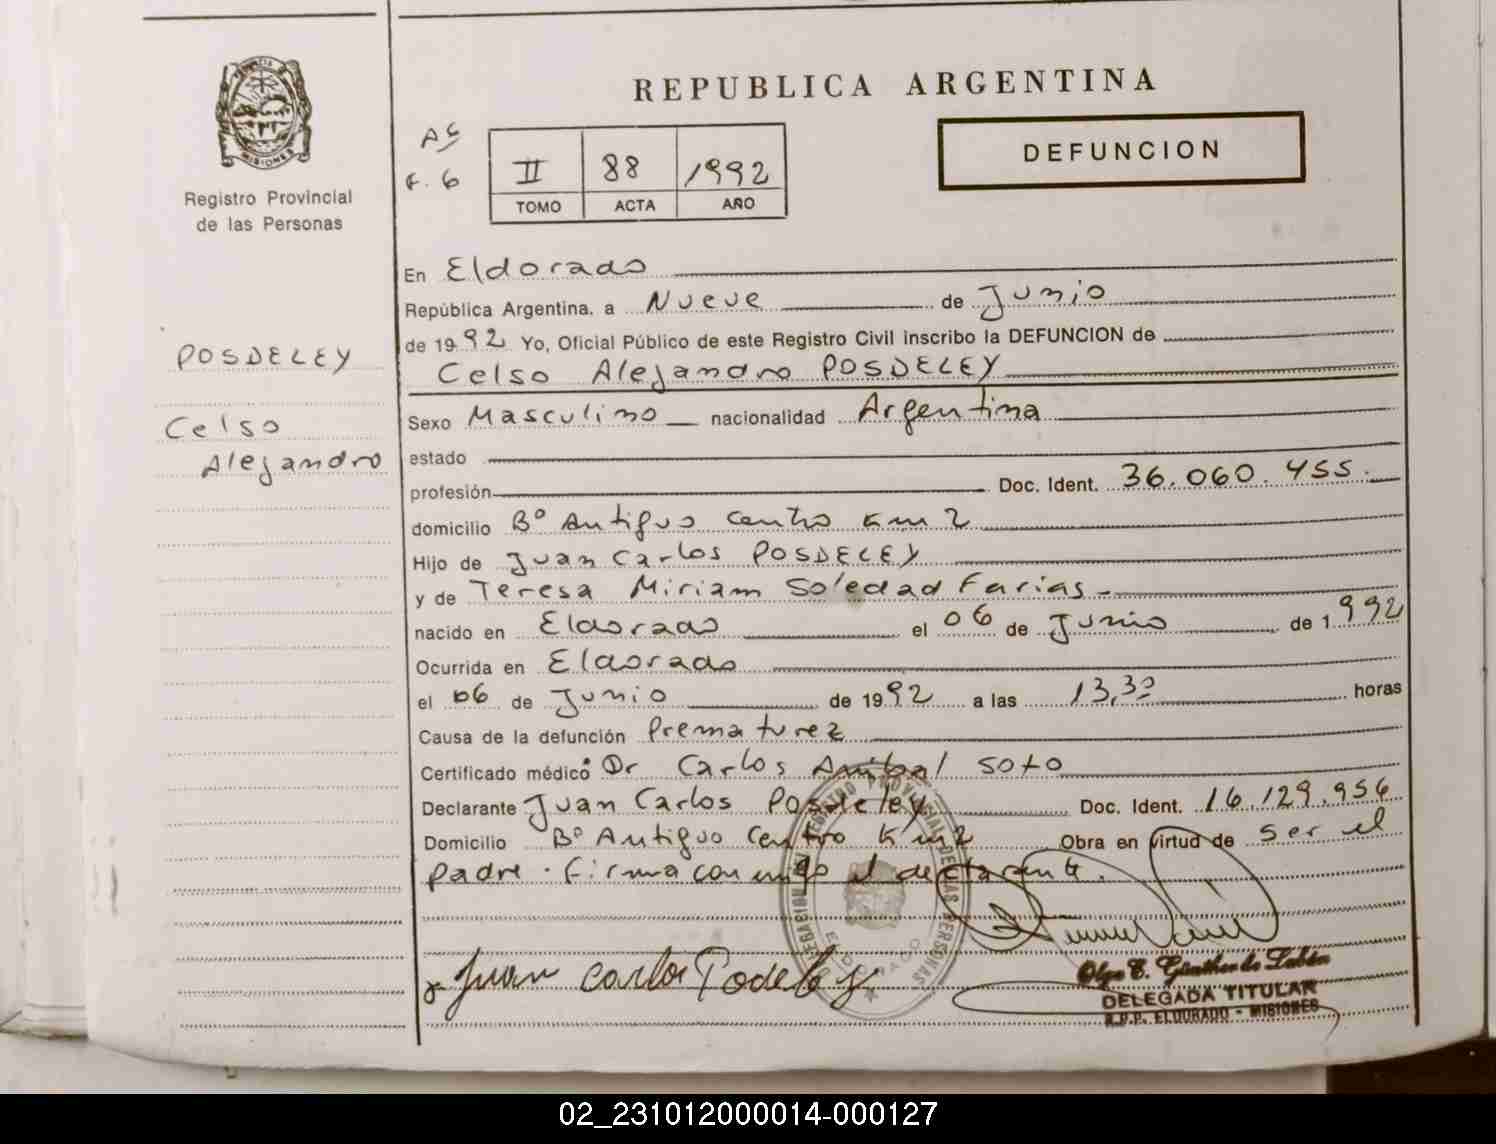 REPUBLICA ARGENTINA
MISIONES
Registro Provincial
de las Personas
DEFUNCION
II 88 1992
TOMO ACTA AÑO
POSDELEY
Celso
Alejandro
En Eldorado
República Argentina, a Nueve de Junio
de 1992 Yo, Oficial Público de este Registro Civil inscribo la DEFUNCION de
Celso Alejandro POSDELEY
Sexo Masculino nacionalidad Argentina
estado
profesión Doc. Ident. 36.060.455.
domicilio Bº Antiguo Centro Km 2
Hijo de Juan Carlos POSDELEY
y de Teresa Miriam Soledad Farias
nacido en Eldorado el 06 de Junio de 1992
Ocurrida en Eldorado
el 06 de Junio de 1992 a las 13,30 horas
Causa de la defunción Prematurez
Certificado médico Dr Carlos Anibal Soto
Declarante Juan Carlos Posdeley Doc. Ident. 16.129.956
Domicilio Bº Antiguo Centro Km 2 Obra en virtud de ser el
padre. firma conmigo el declarante.
Juan Carlos Podeley
Olga E. Günther de
DELEGADA TITULAR
R.P.P. ELDORADO - MISIONES
02_231012000014-000127